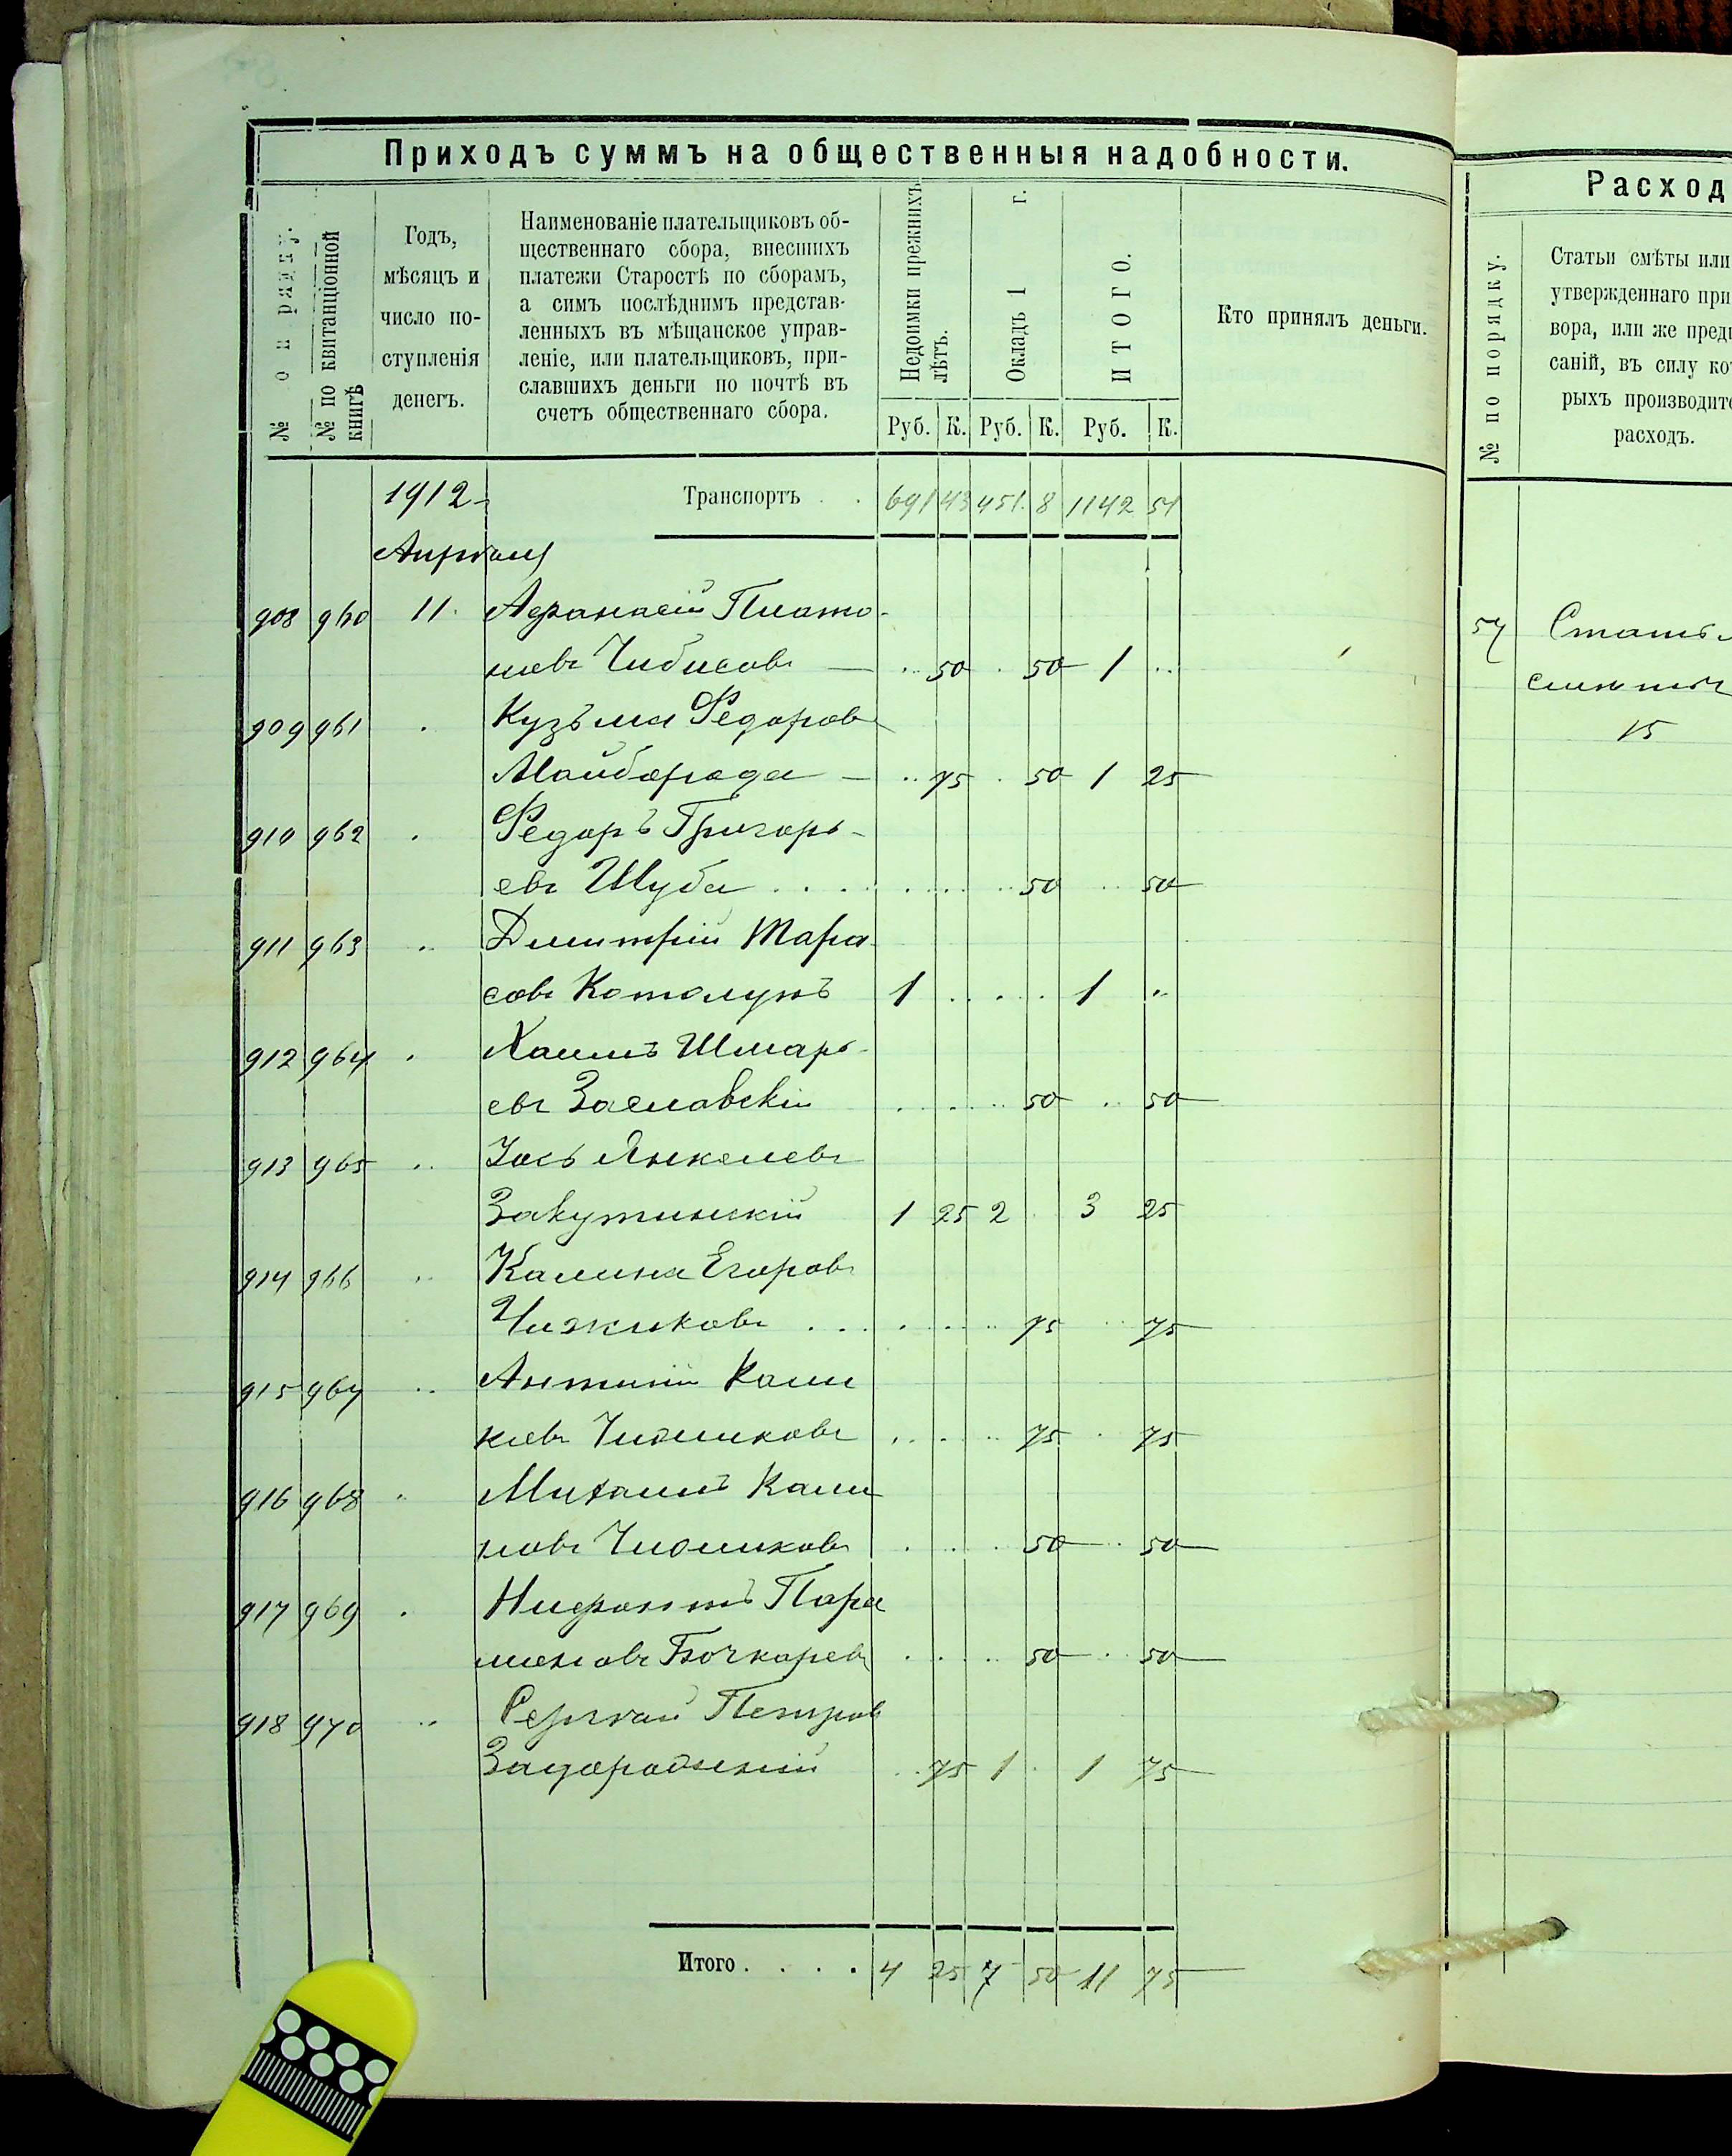 Приходъ суммъ на общественныя надобности.
№ по порядку.
№ по квитанціонной книгѣ
Годъ, мѣсяцъ и число поступленія денегъ.
Наименованіе плательщиковъ об-
щественнаго сбора, внесшихъ
платежи Старостѣ по сборамъ,
а симъ послѣднимъ представ-
ленныхъ въ мѣщанское управ-
леніе, или плательщиковъ, при-
славшихъ деньги по почтѣ въ
счетъ общественнаго сбора.
Недоимки прежнихъ лѣтъ.
Окладъ 1 г.
ИТОГО.
Кто принялъ деньги.
Руб. К. Руб. К. Руб. К.
1912 Транспортъ . . 691 43 451. 8 1142 51
Апрѣля
908 960 11. Афанасій Плато-
новъ Чибисовъ — .. 50 . 50 1 ..
909 961 . Кузьма Федоровъ
Майборода — .. 75 . 50 1 25
910 962 . Федоръ Григорь-
евъ Шуба . . . . . . . . 50 .. 50
911 963 .. Дмитрій Тара-
совъ Котолупъ 1 . . . . 1 ..
912 964 . Хаимъ Шмарь-
евъ Заславскій . . . . . 50 .. 50
913 965 .. Іось Янкелевъ
Закутинскій 1 25 2 . 3 25
914 966 .. Калина Егоровъ
Чижиковъ . . . . . . . . 75 .. 75
915 967 .. Антоній Кали
новъ Чижиковъ . . . . . 75 . 75
916 968 .. Михаилъ Кали
новъ Чижиковъ . . . . 50 .. 50
917 969 . Нифонтъ Пара
моновъ Бочкаревъ . . . . 50 . 50
918 970 .. Сергѣй Петровъ
Загородній .. 75 1 . 1 75
Итого . . . . 4 25 7 50 11 75
Расход
№ по порядку.
Статьи смѣты или
утвержденнаго при
вора, или же пред
саній, въ силу ко
рыхъ производит
расходъ.
57
15